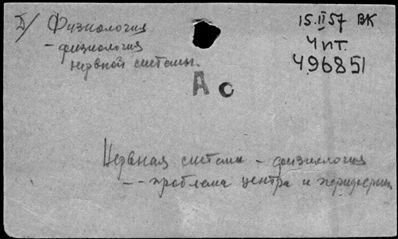 II/ Физиология
- физиология
нервной системы.
15.II 57 ВК
Чит.
496851
Ас
Нервная система - физиология
- - проблема центра и периферии